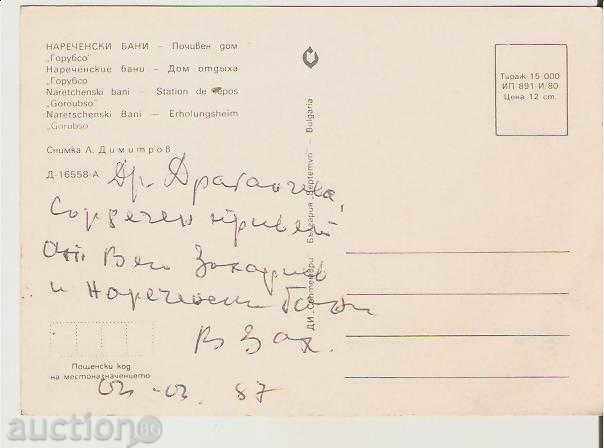 НАРЕЧЕНСКИ БАНИ — Почивен дом
„Горубсо"
Нареченские бани — Дом отдыха
„Горубсо
Naretchenski bani — Station de repos
„Goroubso"
Naretschenski Bani — Erholungsheim
„Gorubso
Снимка Л. Димитров
Д-16558-А
Тираж 15 000
ИП 891 И/80
Цена 12 ст.
ДИ „Септември" — България „Septemvri" — Bulgaria
Др. Драганчева,
Сърдечен привет
От Вен Захариев
и Нареченски бани
В Зах.
Пощенски код
на местоназначението
03. 87
auction BG